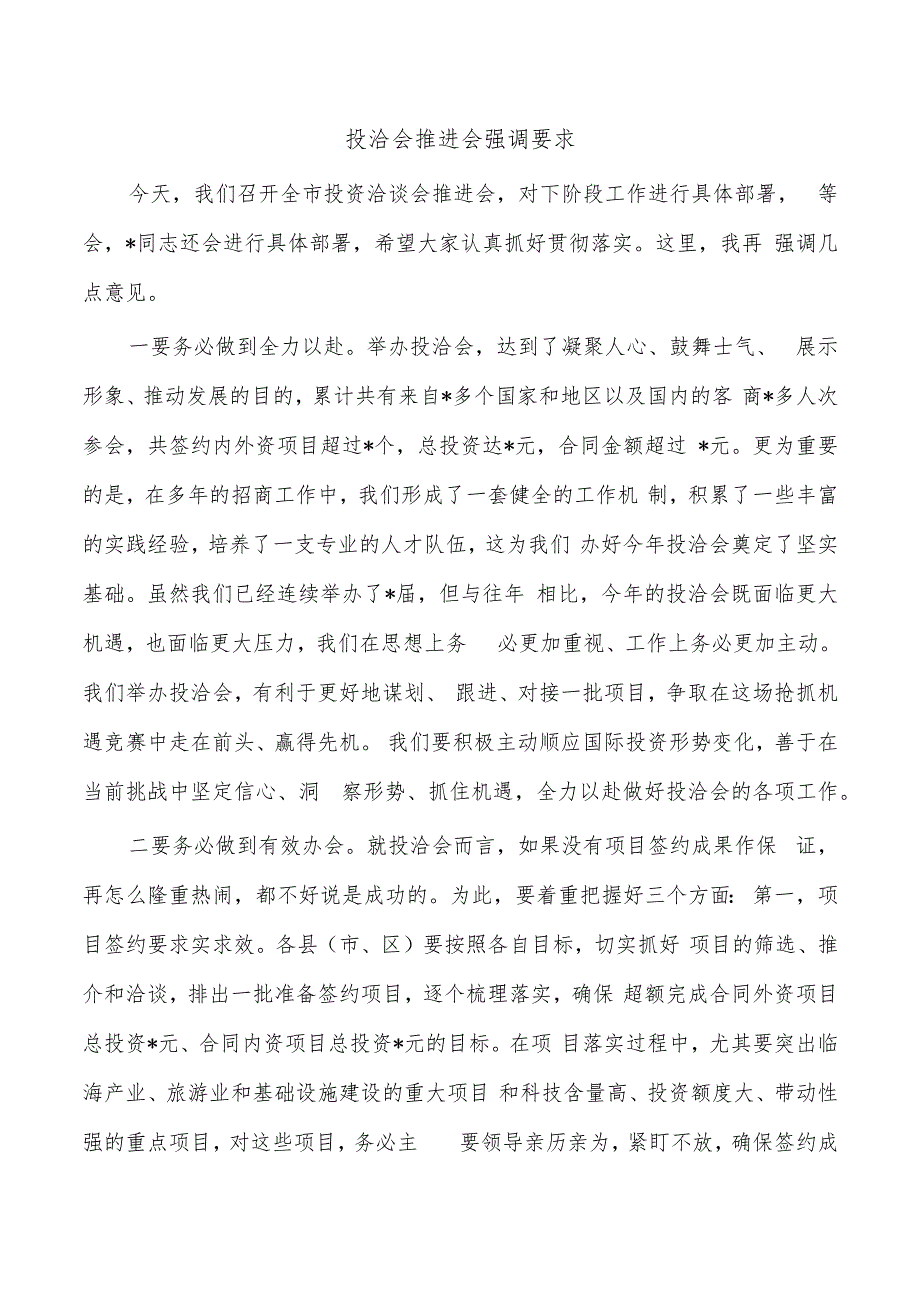 投洽会推进会强调要求
今天，我们召开全市投资洽谈会推进会，对下阶段工作进行具体部署， 等
会，*同志还会进行具体部署，希望大家认真抓好贯彻落实。这里，我再 强调几
点意见。
一要务必做到全力以赴。举办投洽会，达到了凝聚人心、鼓舞士气、 展示
形象、推动发展的目的，累计共有来自*多个国家和地区以及国内的客 商*多人次
参会，共签约内外资项目超过*个，总投资达*元，合同金额超过 *元。更为重要
的是，在多年的招商工作中，我们形成了一套健全的工作机 制，积累了一些丰富
的实践经验，培养了一支专业的人才队伍，这为我们 办好今年投洽会奠定了坚实
基础。虽然我们已经连续举办了*届，但与往年 相比，今年的投洽会既面临更大
机遇，也面临更大压力，我们在思想上务 必更加重视、工作上务必更加主动。
我们举办投洽会，有利于更好地谋划、 跟进、对接一批项目，争取在这场抢抓机
遇竞赛中走在前头、赢得先机。 我们要积极主动顺应国际投资形势变化，善于在
当前挑战中坚定信心、洞 察形势、抓住机遇，全力以赴做好投洽会的各项工作。
二要务必做到有效办会。就投洽会而言，如果没有项目签约成果作保 证，
再怎么隆重热闹，都不好说是成功的。为此，要着重把握好三个方面： 第一，项
目签约要求实求效。各县（市、区）要按照各自目标，切实抓好 项目的筛选、推
介和洽谈，排出一批准备签约项目，逐个梳理落实，确保 超额完成合同外资项目
总投资*元、合同内资项目总投资*元的目标。在项 目落实过程中，尤其要突出临
海产业、旅游业和基础设施建设的重大项目 和科技含量高、投资额度大、带动性
强的重点项目，对这些项目，务必主 要领导亲历亲为，紧盯不放，确保签约成